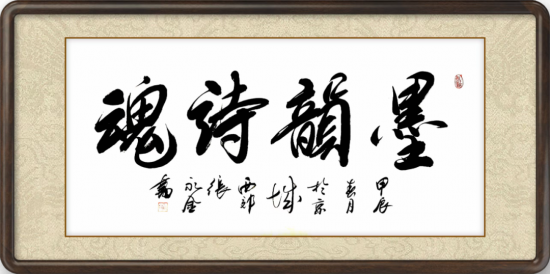 墨韻詩魂
甲辰
春月
於京
城
西郊
張
永金
書